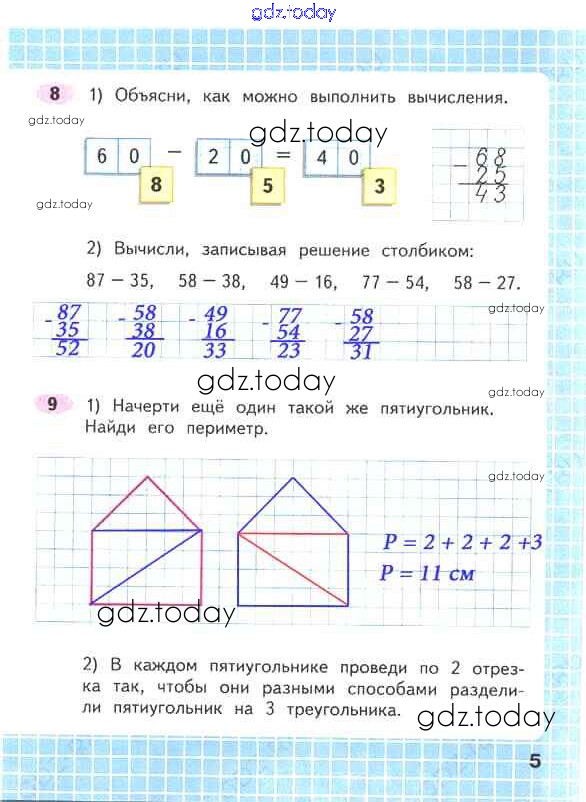 gdz.today
8 1) Объясни, как можно выполнить вычисления.
gdz.today
gdz.today
6 0 − 2 0 = 4 0
8 5 3
- 68
25
43
gdz.today
2) Вычисли, записывая решение столбиком:
87 − 35, 58 − 38, 49 − 16, 77 − 54, 58 − 27.
gdz.today
- 87 - 58 - 49 - 77 - 58
35 38 16 54 27
52 20 33 23 31
gdz.today
gdz.today
9 1) Начерти ещё один такой же пятиугольник.
Найди его периметр.
gdz.today
P = 2 + 2 + 2 +3
P = 11 см
gdz.today
gdz.today
2) В каждом пятиугольнике проведи по 2 отрез-
ка так, чтобы они разными способами раздели-
ли пятиугольник на 3 треугольника.
gdz.today
5